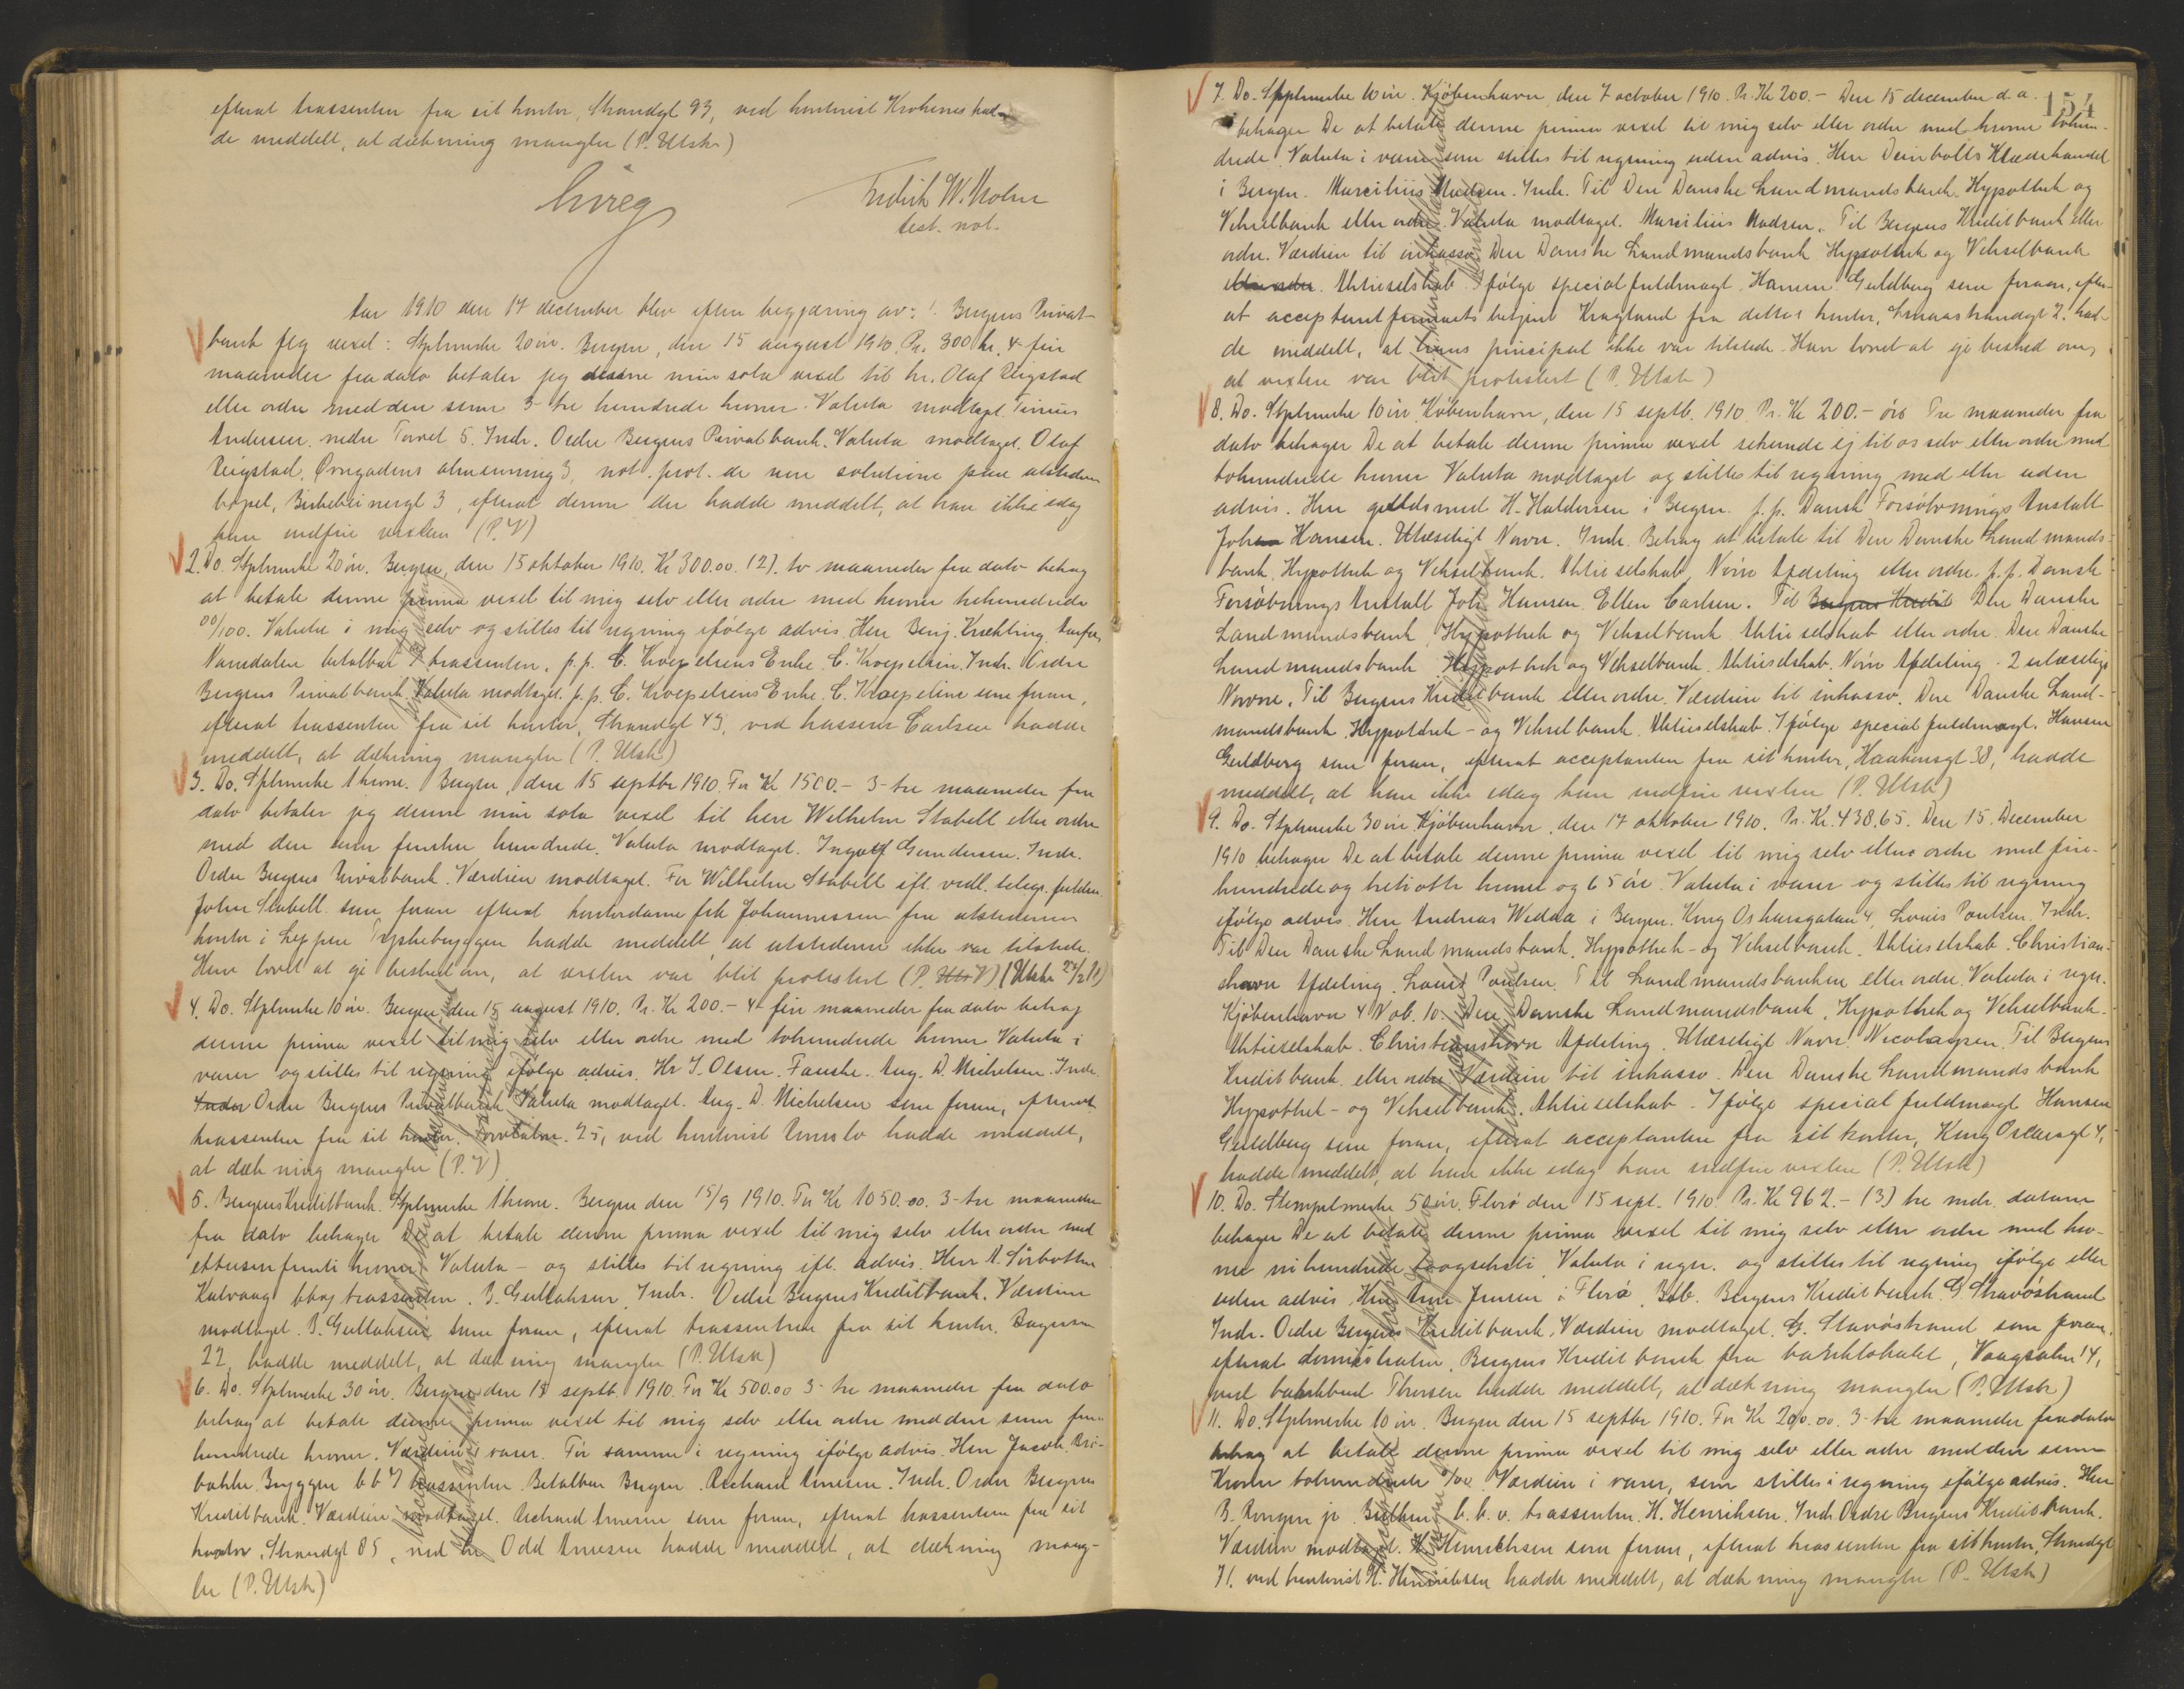 efterat trassenten fra sit kontor, Strandgt 93, ved kontorist Krohnes had-
de meddelt, at dækning mangler (P. Utskr)
Fredrik W. Holm
test. not.
Aar 1910 den 17 december blev efter begjæring av: 1. Bergens Privat-
bank flg vexel: Stplmerke 20 øre. Bergen, den 15 august 1910. Pr. 300 kr. 4 fire
maaneder fra dato betaler jeg denne min sola vexel til hr. Olaf Reigstad
eller ordre med den sum 3 tre hundrede kroner. Valuta modtaget.
Andersen. nedre Torvet 5. Indr. Ordre Bergens Privatbank. Valuta modtaget. Olaf
Reigstad, almenning 3, not. prot. de non solutione paa utstederens
bopel, Birkebeinergt 3, efterat denne der hadde meddelt, at han ikke idag
kan indfri vexlen (P. V)
2. Do. Stplmerke 20 øre. Bergen, den 15 oktober 1910. Kr 300.00. (2). to maaneder fra dato behag
at betale denne prima vexel til mig selv eller ordre med kroner trehundrede
00/100. Valuta i mig selv og stilles til regning ifølge advis. Herr Benj.
Namdalen betalbar trassenten. p.p. C. Kroepeliens Enke. C. Kroepelien. Indr. Ordre
Bergens Privatbank. Valuta modtaget. p.p. C. Kroepeliens Enke. C. Kroepelien som foran,
efterat trassenten fra sit kontor, Strandgt 43, ved kasserer Carlsen hadde
meddelt, at dækning mangler (P. Utskr)
3. Do. Stplmerke 1 krone. Bergen, den 15 septbr 1910. For Kr 1500.- 3 - tre maaneder fra
dato betaler jeg denne min sola vexel til herr Wilhelm Stabell eller ordre
med den sum femten hundrede. Valuta modtaget. Ingolf Gundersen. Indr.
Ordre Bergens Privatbank. Værdien modtaget. For Wilhelm Stabell ifl. vedl. telegr. fuldm.
John Stabell som foran efterat kontordame frk Johannessen fra utstederens
kontor i Leppen Tyskebryggen hadde meddelt, at utstederen ikke var tilstede.
Hun lovet at gi besked om, at vexlen var blit protestert (P. V) (Utskr 22/2 11)
4. Do. Stplmerke 10 øre. Bergen, den 15 august 1910. Pr. Kr 200.- 4 fire maaneder fra dato behag
denne prima vexel til mig selv eller ordre med tohundrede kroner Valuta i
varer og stilles til regning ifølge advis. Hr J. Olsen. Fauske. Aug. D. Michelsen. Indr.
Ordre Bergens Privatbank Valuta modtaget. Aug. D. Michelsen som foran, efterat
trassenten fra sit kontor. Torvalm. 25, ved kontorist hadde meddelt,
at dækning mangler (P. V)
5. Bergens Kreditbank. Stplmerke 1 krone. Bergen den 15/9 1910. For Kr 1050.00. 3 - tre maaneder
fra dato behager De at betale denne prima vexel til mig selv eller ordre med
ettusenfemti kroner Valuta - og stilles til regning ifl. advis. Herr A. Sørbotten
Kalvaag bbos trassenten. B. Gullaksen. Indr. Ordre Bergens Kreditbank. Værdien
modtaget. B. Gullaksen som foran, efterat trassenten fra sit kontor.
22, hadde meddelt, at dækning mangler (P. Utskr)
6. Do. Stplmerke 30 øre. Bergen den 15 septb. 1910. For Kr 500.00 3 - tre maaneder fra dato
behag at betale denne prima vexel til mig selv eller ordre med den sum fem
hundrede kroner. Værdien i varer. Før samme i regning ifølge advis. Herr Jacob
Bryggen bb trassenten. Betalbar Bergen. Richard Arnesen. Indr. Ordre Bergens
Kreditbank. Værdien modtaget. Richard Arnesen som foran, efterat trassenten fra sit
kontor, Strandgt 85, ved hr Odd Arnesen hadde meddelt, at dækning mang-
ler (P. Utskr)
154
7. Do. Stplmerke 10 øre. Kjøbenhavn, den 7 october 1910. Pr. Kr 200.- Den 15 december d.a.
behager De at betale denne prima vexel til mig selv eller ordre med kroner tohun-
drede. Valuta i varer som stilles til regning uden advis. Herr Deinbolls Klædehandel
i Bergen. Marcilius Madsen. Indr. Til Den Danske Landmandsbank Hypothek og
Vekselbank eller ordre. Valuta modtaget. Marcilius Madsen. Til Bergens Kreditbank eller
ordre. Værdien til inkasso. Den Danske Landmandsbank Hypothek og Vekselbank
Aktieselskab. Ifølge special fuldmagt. Hansen. Guldberg som foran, efter-
at acceptantfirmaets betjent Kragland fra dettes kontor, Smaastrandgt 2. had-
de meddelt, at hans principal ikke var tilstede. Han lovet at gi besked om,
at vexlen var blit protestert (P. Utskr)
8. Do. Stplmerke 10 øre København, den 15 septb. 1910 Pr. Kr 200.- øre Tre maaneder fra
dato behager De at betale denne prima vexel sekunda ej til os selv eller ordre med
tohundrede kroner Valuta modtaget og stilles til regning med eller uden
advis. Herr guldsmed H. Haldorsen i Bergen. p.p. Dansk Forsølvnings Anstalt
Joh. Hansen. Ulæseligt Navn. Indr. Behag at betale til Den Danske Landmands-
bank, Hypothek og Vekselbank. Aktieselskab Nørre Afdeling eller ordre. p.p. Dansk
Forsølvnings Anstalt Joh Hansen. Ellen Carlsen. Til Bergens Kredit Den Danske
Landmandsbank, Hypothek og Vekselbank Aktieselskab eller ordre. Den Danske
Landmandsbank Hypothek og Vekselbank. Aktieselskab. Nørre Afdeling. 2 ulæselige
Navne. Til Bergens Kreditbank eller ordre. Værdien til inkasso. Den Danske Land-
mandsbank, Hypothek - og Vekselbank. Aktieselskab. Ifølge special fuldmagt. Hansen
Guldberg som foran, efterat acceptanten fra sit kontor, Haakonsgt 38, hadde
meddelt, at han ikke idag kan indfri vexlen (P. Utskr)
9. Do. Stplmerke 30 øre Kjøbenhavn, den 17 oktober 1910. Pr. Kr. 438,65. Den 15. December
1910 behager De at betale denne prima vexel til mig selv eller ordre med fire-
hundrede og tretiotte kroner og 65 øre. Valuta i varer og stilles til regning
ifølge advis. Herr Andreas Wedaa i Bergen. Kong Oskarsgatan 4. Louis Poulsen. Indr.
Til Den Danske Landmandsbank, Hypothek - og Vekselbank. Aktieselskab. Christians-
havn Afdeling. Louis Poulsen. Til Landmandsbanken eller ordre. Valuta i regn.
Kjøbenhavn 4 Nob. 10. Den Danske Landmandsbank, Hypothek og Vekselbank.
Aktieselskab. Christianshavn Afdeling. Ulæseligt Navn. Nicolaysen. Til Bergens
Kreditbank eller ordre Værdien til inkasso. Den Danske Landmandsbank
Hypothek - og Vekselbank. Aktieselskab. Ifølge special fuldmagt Hansen
Guldberg som foran, efterat acceptanten fra sit kontor, Kong Oscarsgt 4,
hadde meddelt, at han ikke idag kan indfri vexlen (P. Utskr)
10. Do. Stempelmerke 50 øre. Florø den 15 sept. 1910. Pr. Kr 962.- (3) tre mdr. datum
behager De at betale denne prima vexel til mig selv eller ordre med kro-
ner nihundrede toogseksti. Valuta i regn. og stilles til regning ifølge eller
uden advis. Herr Jensen i Florø. Betb. Bergens Kreditbank. G. Stavøstrand
Indr. Ordre Bergens Kreditbank. Værdien modtaget. G. Stavøstrand som foran,
efterat domiciliaten, Bergens Kreditbank fra banklokalet, Vaagsalm 14,
ved bankbud Thorsen hadde meddelt, at dækning mangler (P. Utskr)
11. Do. Stplmerke 10 øre. Bergen den 15 septbr 1910. For Kr 200.00. 3 - tre maaneder fra dato
behag at betale denne prima vexel til mig selv eller ordre med den sum
Kroner tohundrede 0/00. Værdien i varer, som stilles i regning ifølge advis. Herr
B. Rongen jr. b. b. v. trassenten. H. Henriksen. Indr. Ordre Bergens Kreditbank.
Værdien modtaget. H. Henrichsen som foran, efterat trassenten fra sit kontor, Strandgt
71. ved kontorist H. Henriksen hadde meddelt, at dækning mangler (P. Utskr)